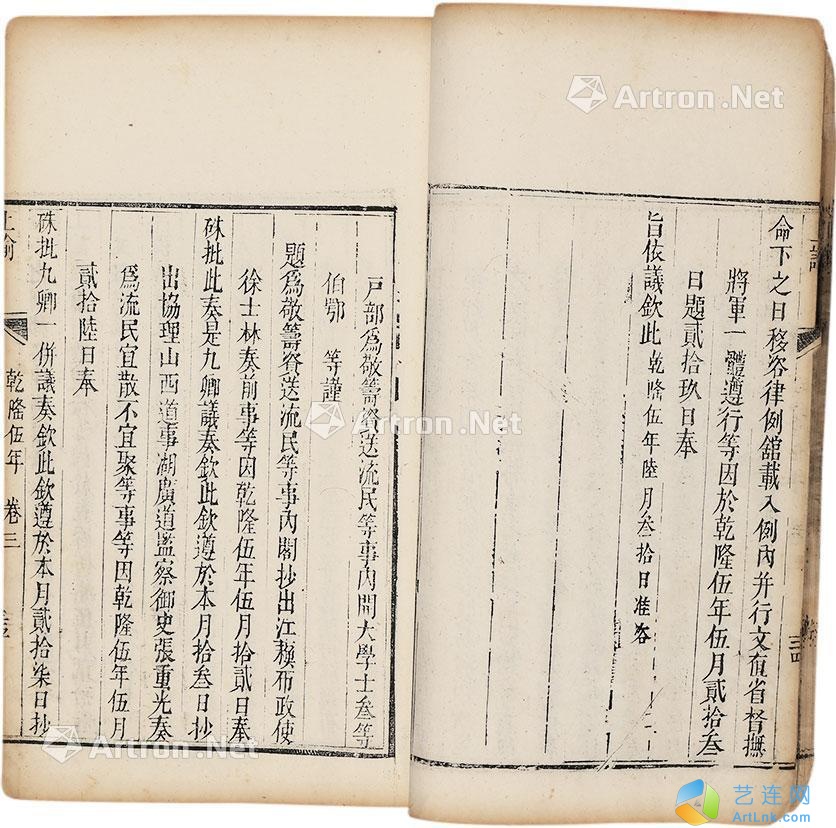 命下之日移咨律例舘載入例內并行文直省督撫
將軍一體遵行等因於乾隆伍年伍月貳拾叁
日題貳拾玖日奉
旨依議欽此乾隆伍年陸月叁拾日准咨
戶部為敬籌資送流民等事內開大學士叁等
伯鄂 等謹
題為敬籌資送流民等事內閣抄出江蘇布政使
徐士林奏前事等因乾隆伍年伍月拾貳日奉
硃批此奏是九卿議奏欽此欽遵於本月拾叁日抄
出協理山西道事湖廣道監察御史張重光奏
為流民宜散不宜聚等事等因乾隆伍年伍月
貳拾陸日奉
硃批九卿一併議奏欽此欽遵於本月貳拾柒日抄
上諭
乾隆伍年 卷三
Artron.Net
Artron.Net
Artron.Net
艺连网
ArtLnk.Com